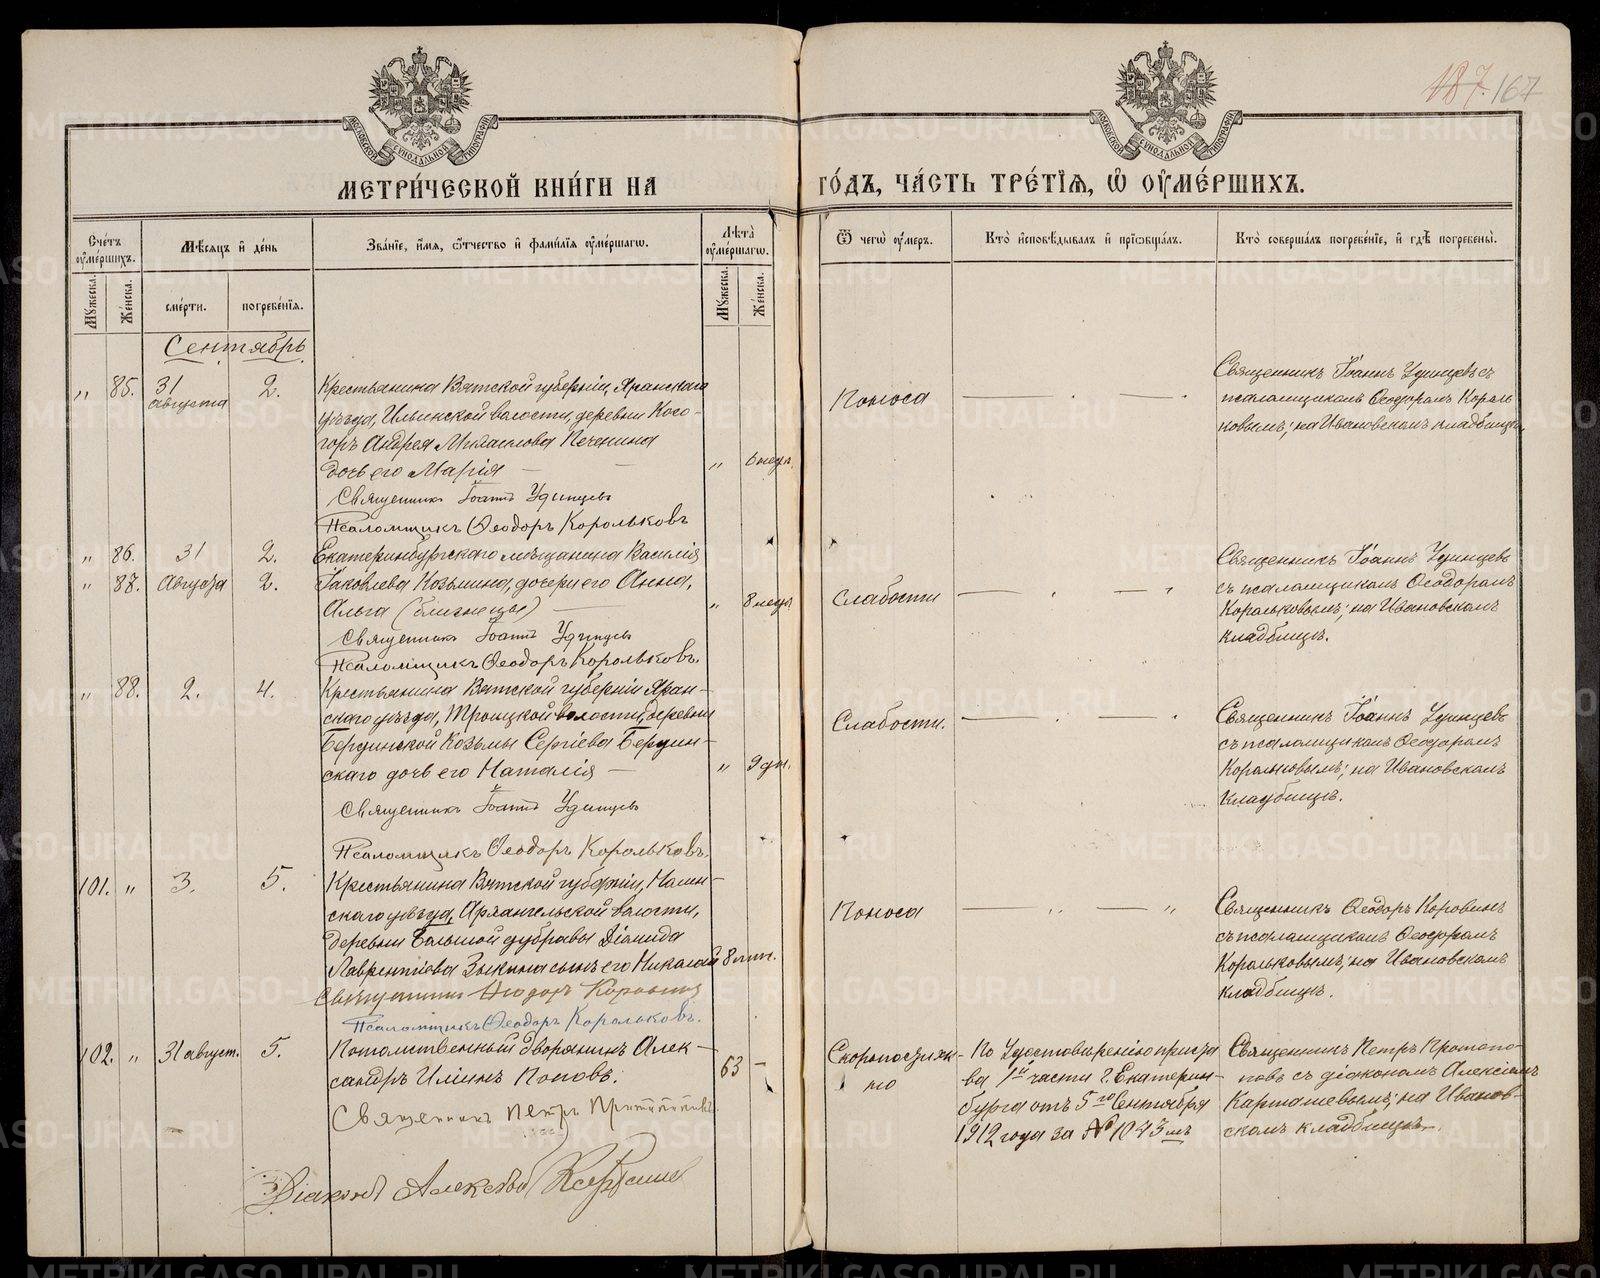 187. 167
МОСКОВСКОЙ СѴНОДАЛЬНОЙ ТИПОГРАФІИ
МОСКОВСКОЙ СѴНОДАЛЬНОЙ ТИПОГРАФІИ
МЕТРИ́ЧЕСКОЙ КНИ́ГИ НА
ГО́ДЪ, ЧА́СТЬ ТРЕ́ТІѦ, Ѡ ОУМЕ́РШИХЪ.
Сче́тъ оуме́ршихъ.
Мѣ́сяцъ и де́нь
Зва́нїе, и́мя, ѻ́тчество и фами́лїя оуме́ршагѡ.
Лѣ́та оуме́ршагѡ.
Ѿ чегѡ̀ оу́меръ.
Кто̀ и҆сповѣ́дывалъ и прїѡбща́лъ.
Кто̀ соверша́лъ погребе́нїе, и гдѣ̀ погребены̀.
Му́жеска.
Же́нска.
сме́рти.
погребе́нїя.
Му́жеска.
Же́нска.
Сентябрь
" 85. 31 августа 2.
Крестьянина Вятской губерніи, Яранскаго
уѣзда, Ильинской волости, деревни Косо-
горъ Андрея Печенина
дочь его Марія — " 6 нед.
Священникъ Іоаннъ Удинцевъ
Псаломщикъ Ѳеодоръ Корольковъ
Поноса
Священникъ Іоаннъ Удинцевъ съ
псаломщикомъ Ѳеодоромъ Король
ковымъ; на Ивановскомъ кладбищѣ.
" 86. 31 2. Екатеринбургскаго мѣщанина Василія
" 87. Августа 2. Іаковлева Козьмина, дочери его Анна,
Ольга (близнецы) — " 8 нед.
Священникъ Іоаннъ Удинцевъ
Псаломщикъ Ѳеодоръ Корольковъ.
Слабости
Священникъ Іоаннъ Удинцевъ
съ псаломщикомъ Ѳеодоромъ
Корольковымъ; на Ивановскомъ
кладбищѣ.
" 88. 2. 4. Крестьянина Вятской губерніи Яран-
скаго уѣзда, Троицкой волости, деревни
Бердинской Козьмы Сергіева Бердин-
скаго дочь его Наталія — " 9 дн.
Священникъ Іоаннъ Удинцевъ
Псаломщикъ Ѳеодоръ Корольковъ.
Слабости.
Священникъ Іоаннъ Удинцевъ
съ псаломщикомъ Ѳеодоромъ
Корольковымъ; на Ивановскомъ
кладбищѣ.
101. " 3. 5. Крестьянина Вятской губерніи, Нолин-
скаго уѣзда, Архангельской волости,
деревни Большой дубравы Діомида
Лаврентіева Зыкина сынъ его Николай 8 мѣс.
Священникъ Ѳеодоръ Коровинъ
Псаломщикъ Ѳеодоръ Корольковъ.
Поноса
Священникъ Ѳеодоръ Коровинъ
съ псаломщикомъ Ѳеодоромъ
Корольковымъ; на Ивановскомъ
кладбищѣ.
102. " 31 август. 5. Потомственный дворянинъ Алек-
сандръ Иліинъ Поповъ. 63 -
Священникъ Петръ Протопоповъ
Діаконъ Алексѣй Карташевъ
Скоропостиж-
но
По удостовѣренію приста
ва 1й части г. Екатерин-
бурга отъ 5го Сентября
1912 года за № 1043мъ
Священникъ Петръ Протопо-
повъ съ діакономъ Алексіемъ
Карташевымъ; на Иванов-
скомъ кладбищѣ.
METRIKI.GASO-URAL.RU